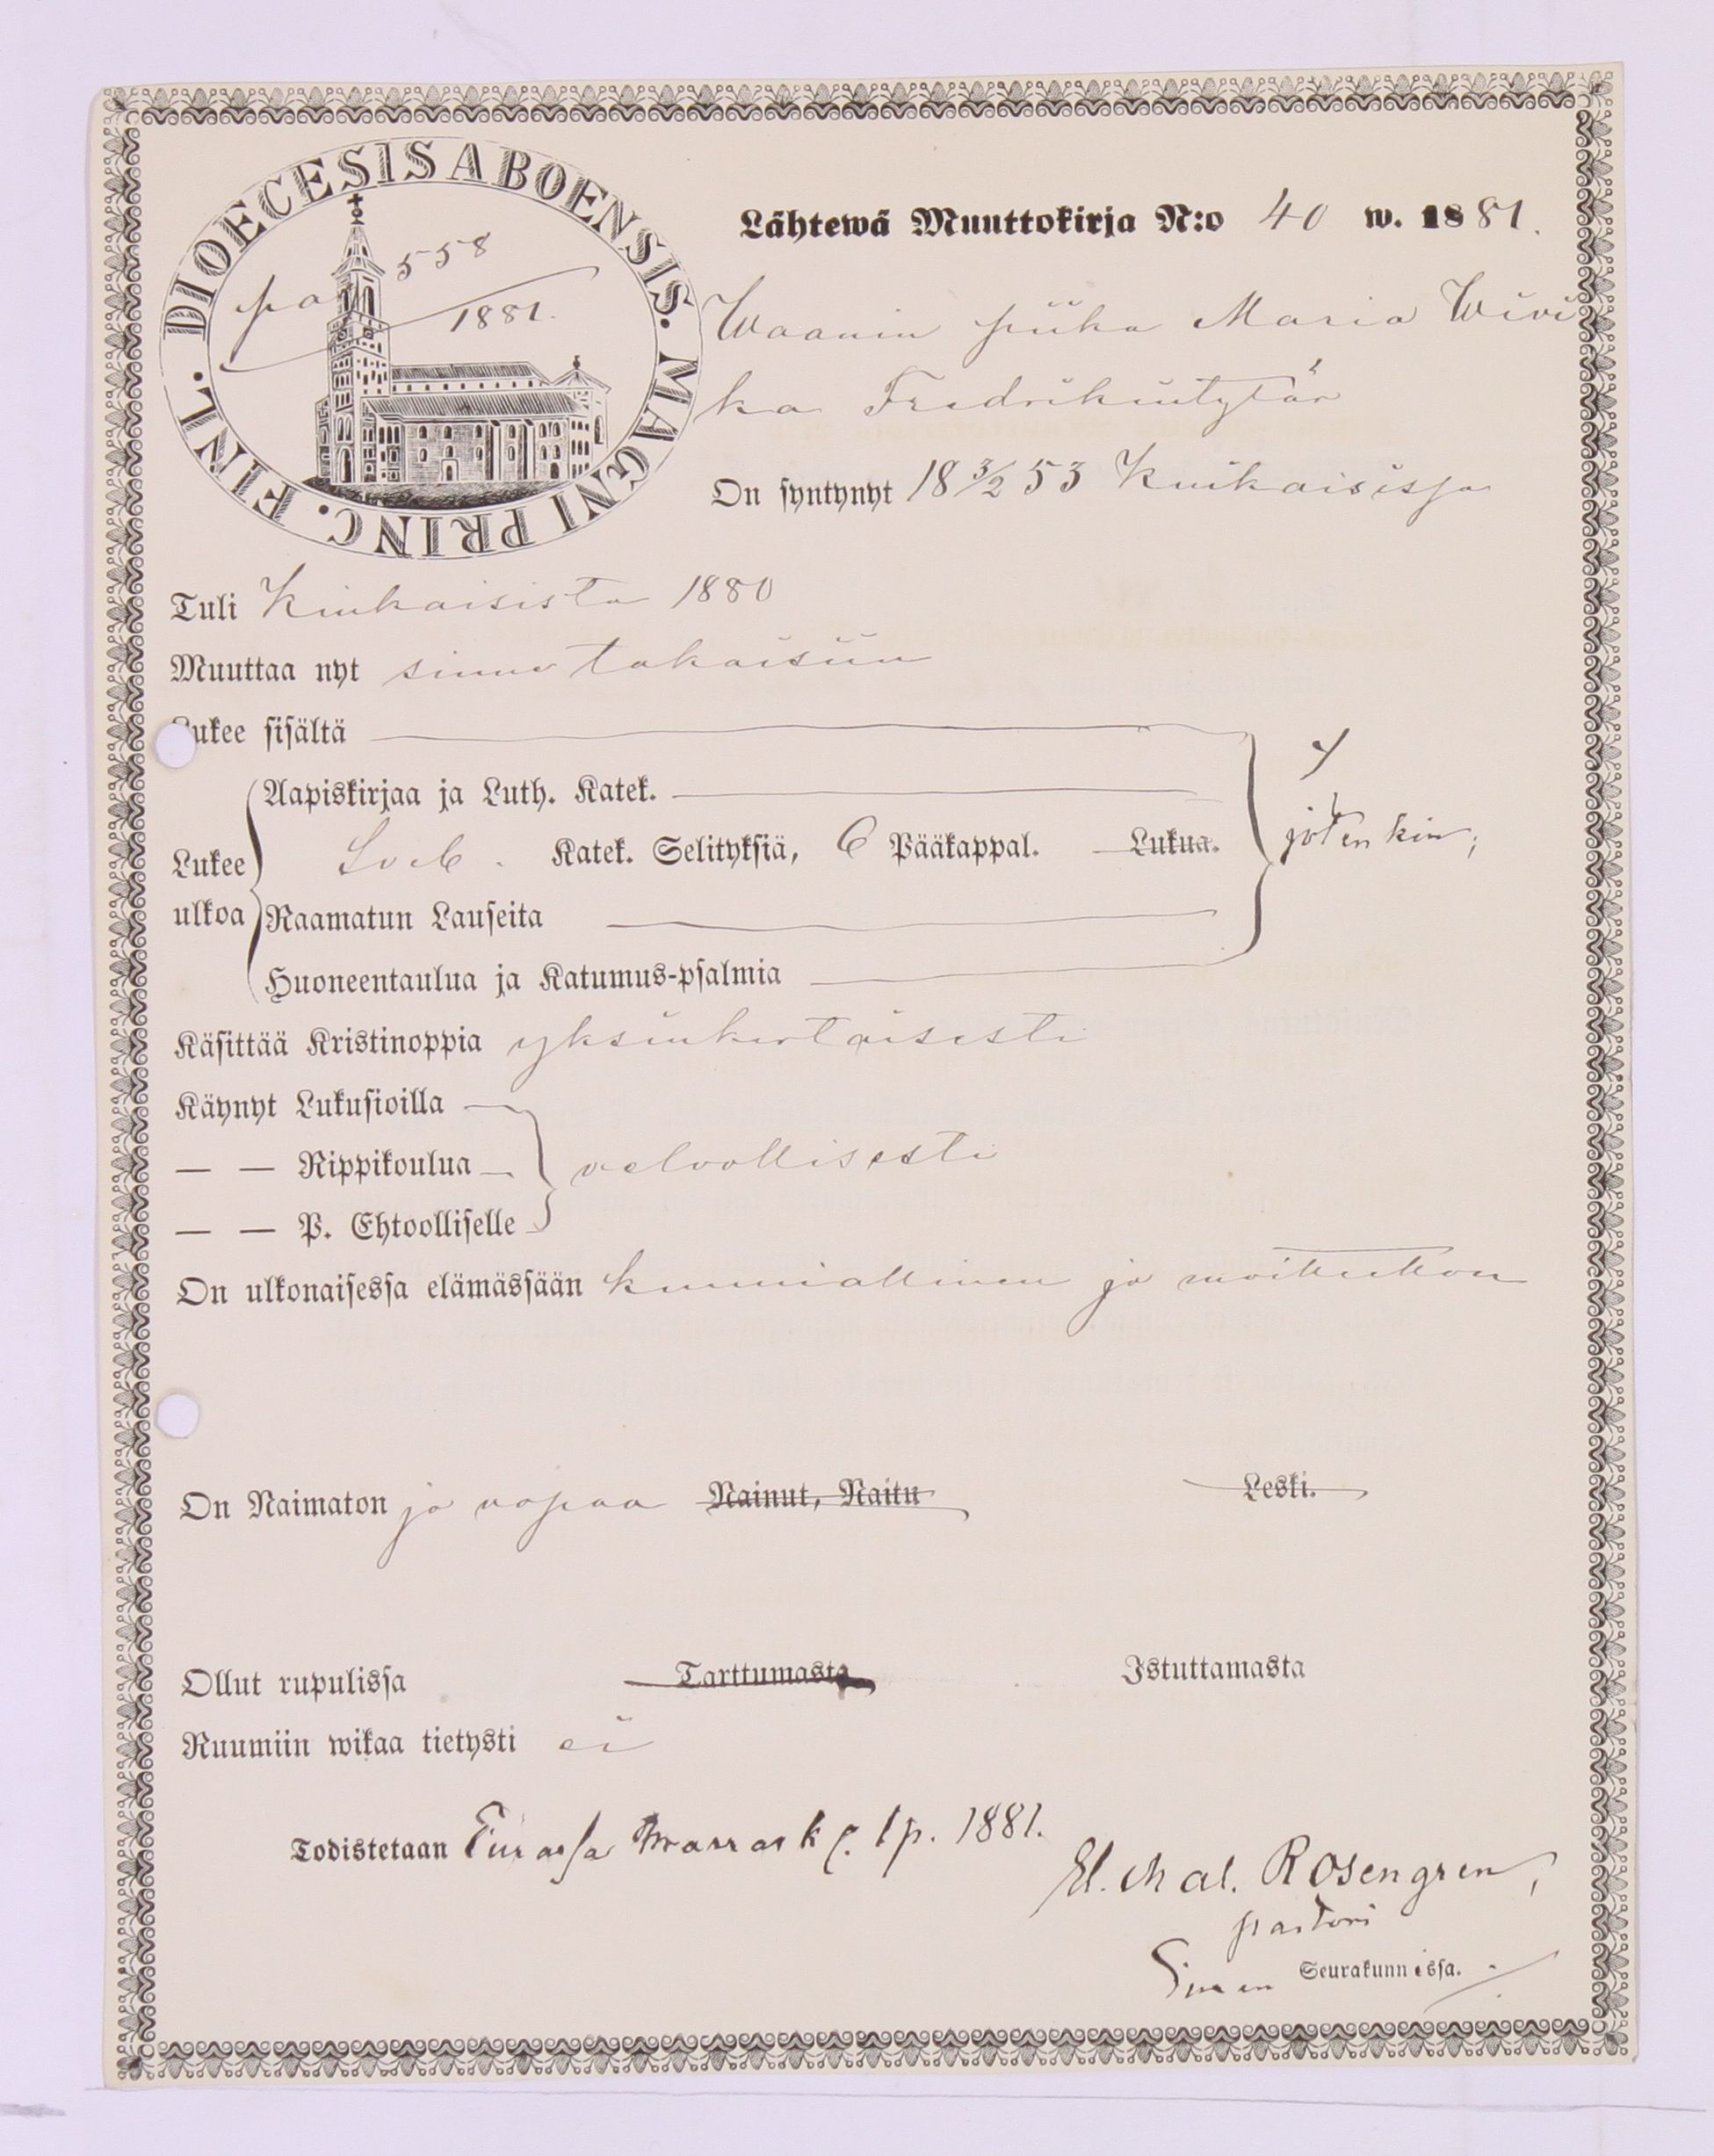 DIOECESIS ABOENSIS. MAGNI PRINC. FINL.
pag 558
1881.
Lähtewä Muuttokirja N:o 40 w. 1881.
Waanin piika Maria Wivi
ka Fredrikintytär
On syntynyt 18 3/2 53 Kiukaisissa
Tuli Kiukaisista 1880
Muuttaa nyt sinne takaisiin
Lukee sisältä
Aapiskirjaa ja Luth. Katek.
Lukee Katek. Selityksiä, 6 Pääkappal. Lukua. jotenkin;
ulkoa Raamatun Lauseita
Huoneentaulua ja Katumus-psalmia
Käsittää Kristinoppia yksinkertaisesti
Käynyt Lukusioilla
— — Rippikoulua velvollisesti
— — P. Ehtoolliselle
On ulkonaisessa elämässään kunniallinen ja moitteeton
On Naimaton ja vapaa Nainut, Naitu Leski.
Ollut rupulissa Tarttumasta Istuttamasta
Ruumiin wikaa tietysti ei
Todistetaan Eurassa marrask. 1 p. 1881.
Rosengren,
pastori
Euran Seurakunnissa.